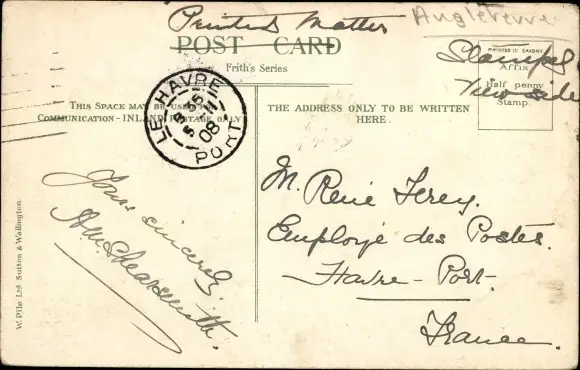 Printed Matter
Angleterre
POST CARD
Frith's Series
PRINTED IN SAXONY
Affix
Half penny
Stamp.
Stamped
View side
THIS SPACE MAY BE USED FOR
COMMUNICATION - INLAND POSTAGE ONLY
THE ADDRESS ONLY TO BE WRITTEN
HERE.
LE HAVRE
08
PORT
Yours sincerely.
M. René Ferey.
Employé des Postes.
Havre-Port-
France.
W. Pile Ltd Sutton & Wallington.